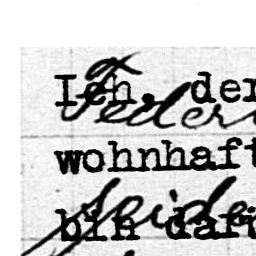 Ich, der
Feder
wohnhaft
Seide
bin dafü